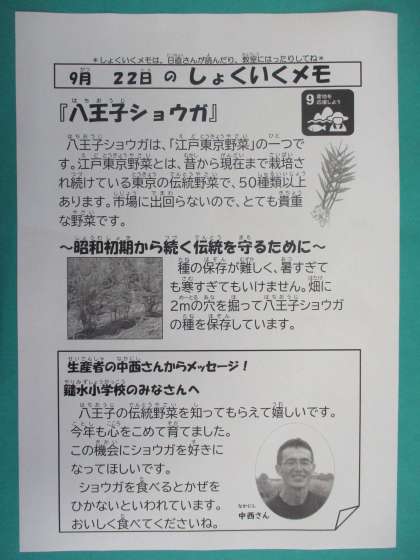 ＊しょくいくメモは、日直さんが読んだり、教室にはったりしてね＊
9月 22日 の しょくいくメモ
『八王子ショウガ』
9 産地を応援しよう
八王子ショウガは、「江戸東京野菜」の一つで
す。江戸東京野菜とは、昔から現在まで栽培さ
れ続けている東京の伝統野菜で、50種類以上
あります。市場に出回らないので、とても貴重
な野菜です。
～昭和初期から続く伝統を守るために～
種の保存が難しく、暑すぎて
も寒すぎてもいけません。畑に
2mの穴を掘って八王子ショウガ
の種を保存しています。
生産者の中西さんからメッセージ！
鑓水小学校のみなさんへ
八王子の伝統野菜を知ってもらえて嬉しいです。
今年も心をこめて育てました。
この機会にショウガを好きに
なってほしいです。
ショウガを食べるとかぜを
ひかないといわれています。
おいしく食べてくださいね。
中西さん